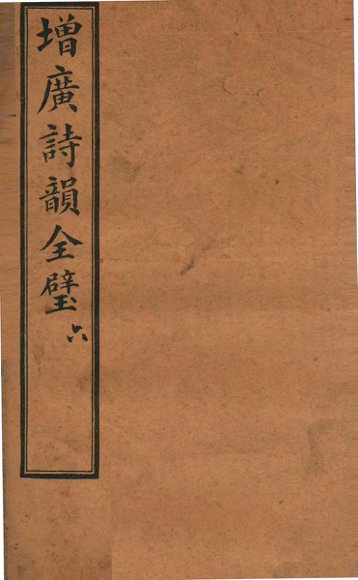 增廣詩韻全璧 六